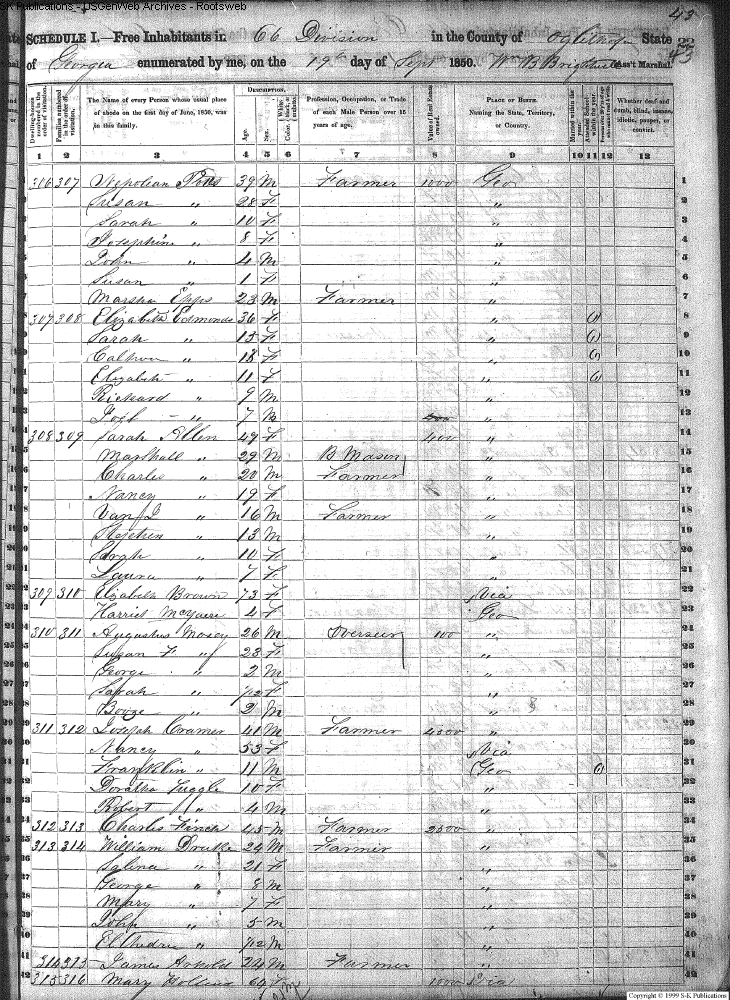 SK Publications - USGenWeb Archives - Rootsweb
43
SCHEDULE I.—Free Inhabitants in 66 Division in the County of Oglethorpe State
of Georgia enumerated by me, on the 19th day of Sept 1850. Wm B Brightwell Ass't Marshal.
DESCRIPTION.
Dwelling-houses numbered in the order of visitation.
Families numbered in the order of visitation.
The Name of every Person whose usual place of abode on the first day of June, 1850, was in this family.
Age.
Sex.
Color, White, black, or mulatto.
Profession, Occupation, or Trade of each Male Person over 15 years of age.
Value of Real Estate owned.
PLACE OF BIRTH. Naming the State, Territory, or Country.
Married within the year.
Attended School within the year.
Persons over 20 y'rs of age who cannot read & write.
Whether deaf and dumb, blind, insane, idiotic, pauper, or convict.
1 2 3 4 5 6 7 8 9 10 11 12 13
306 307 Nepolian 39 M Farmer 1000 Geo 1
Susan " 28 F " 2
Sarah " 10 F " 3
Josephine " 8 F " 4
John " 4 M " 5
Susan " 1 F " 6
Marsha Epps 23 M Farmer " 7
307 308 Elizabeth Edmonds 36 F " (1) 8
Sarah " 15 F " (1) 9
Calhoun " 13 F " (1) 10
Elizabeth " 11 F " (1) 11
Richard " 9 M " 12
" 7 M " 13
308 309 Sarah Allen 49 F 400 " 14
Marshall " 29 M B Mason " 15
Charles " 20 M Farmer " 16
Nancy " 19 F " 17
Van J " 16 M Farmer " 18
Stephen " 13 M " 19
Sarah " 10 F " 20
Laura " 7 F " 21
309 310 Elizabeth Brown 73 F Via 22
Harriet 4 F Geo 23
310 311 Augustus Maxey 26 M Overseer 100 " 24
Susan F " 23 F " 25
George " 2 M " 26
Sarah " /12 F " 27
Booze " 2 M " 28
311 312 Joseph Cramer 41 M Farmer 4500 " 29
Nancy " 53 F Via 30
Franklin " 11 M Geo (1) 31
Doratha Tuggle 10 F " 32
Robert " 4 M " 33
312 313 Charles Finch 45 M Farmer 2500 " 34
313 314 William 24 M Farmer " 35
" 21 F " 36
George " 8 M " 37
Mary " 7 F " 38
John " 5 M " 39
" /12 M " 40
314 315 James Arnold 24 M Farmer " 41
315 316 Mary 60 F 1000 Via 42
Copyright © 1999 S-K Publications